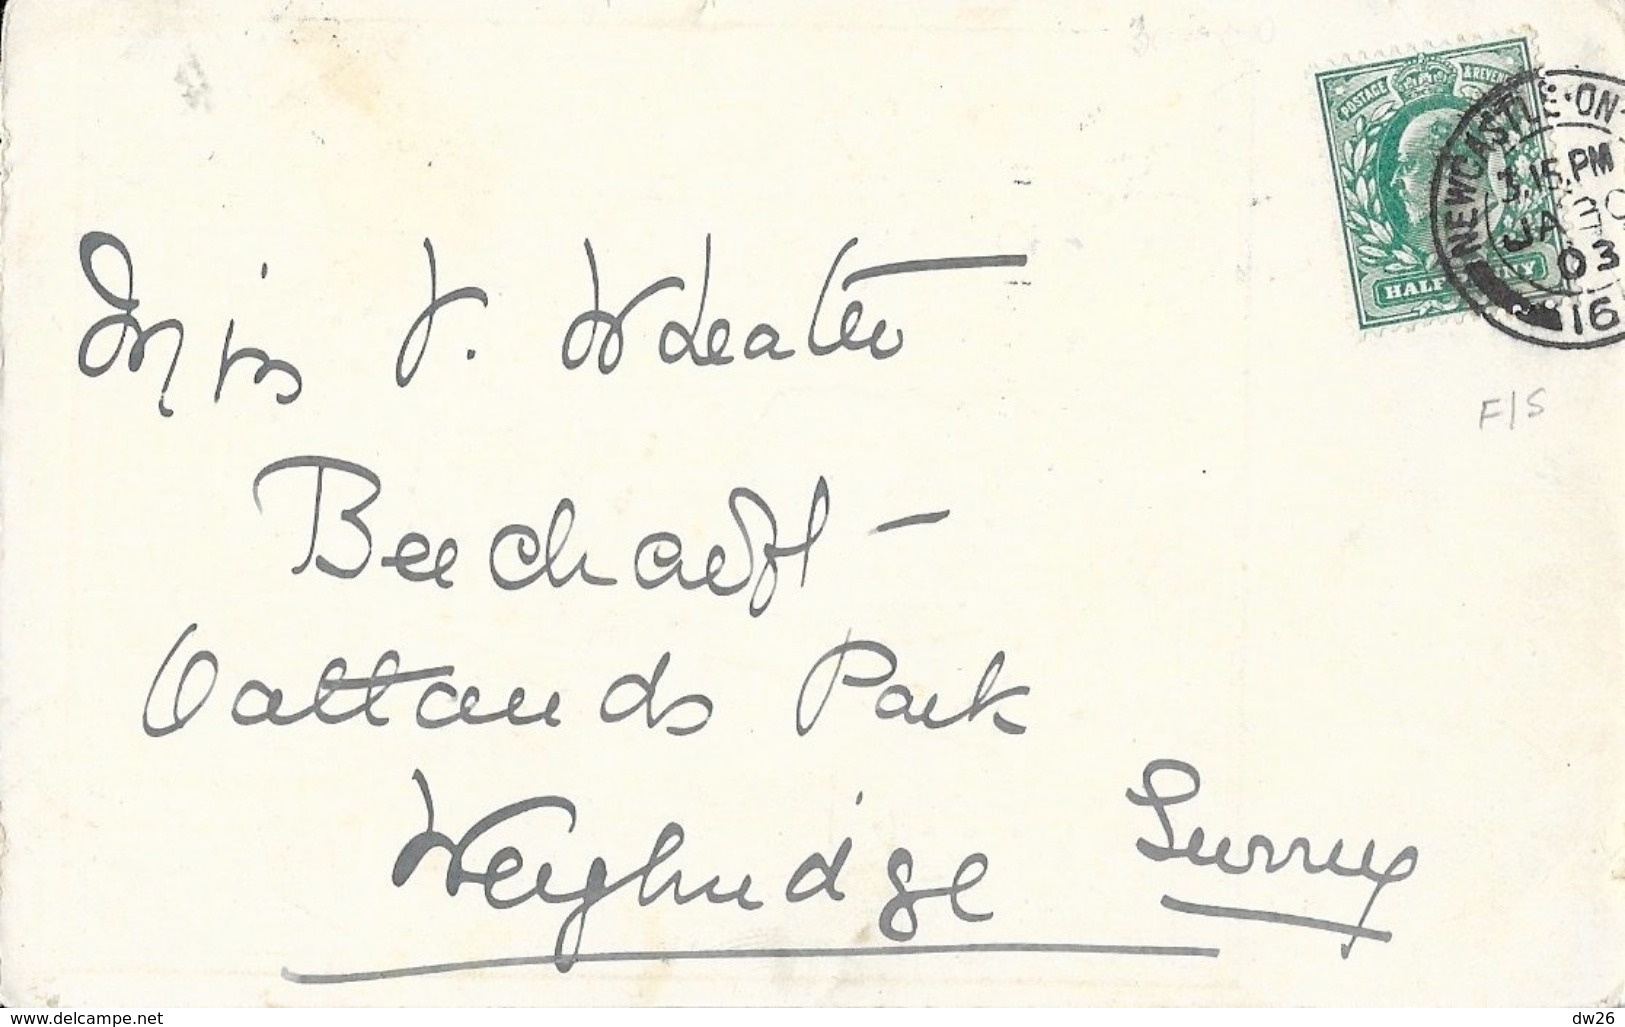 POSTAGE & REVENUE
NEWCASTLE·ON·
3.15.PM
JA 30
03
16
HALF PENNY
F/S
Miss V. Wheatley
Beechcroft -
Oatlands Park
Weybridge
Surrey
www.delcampe.net
dw26